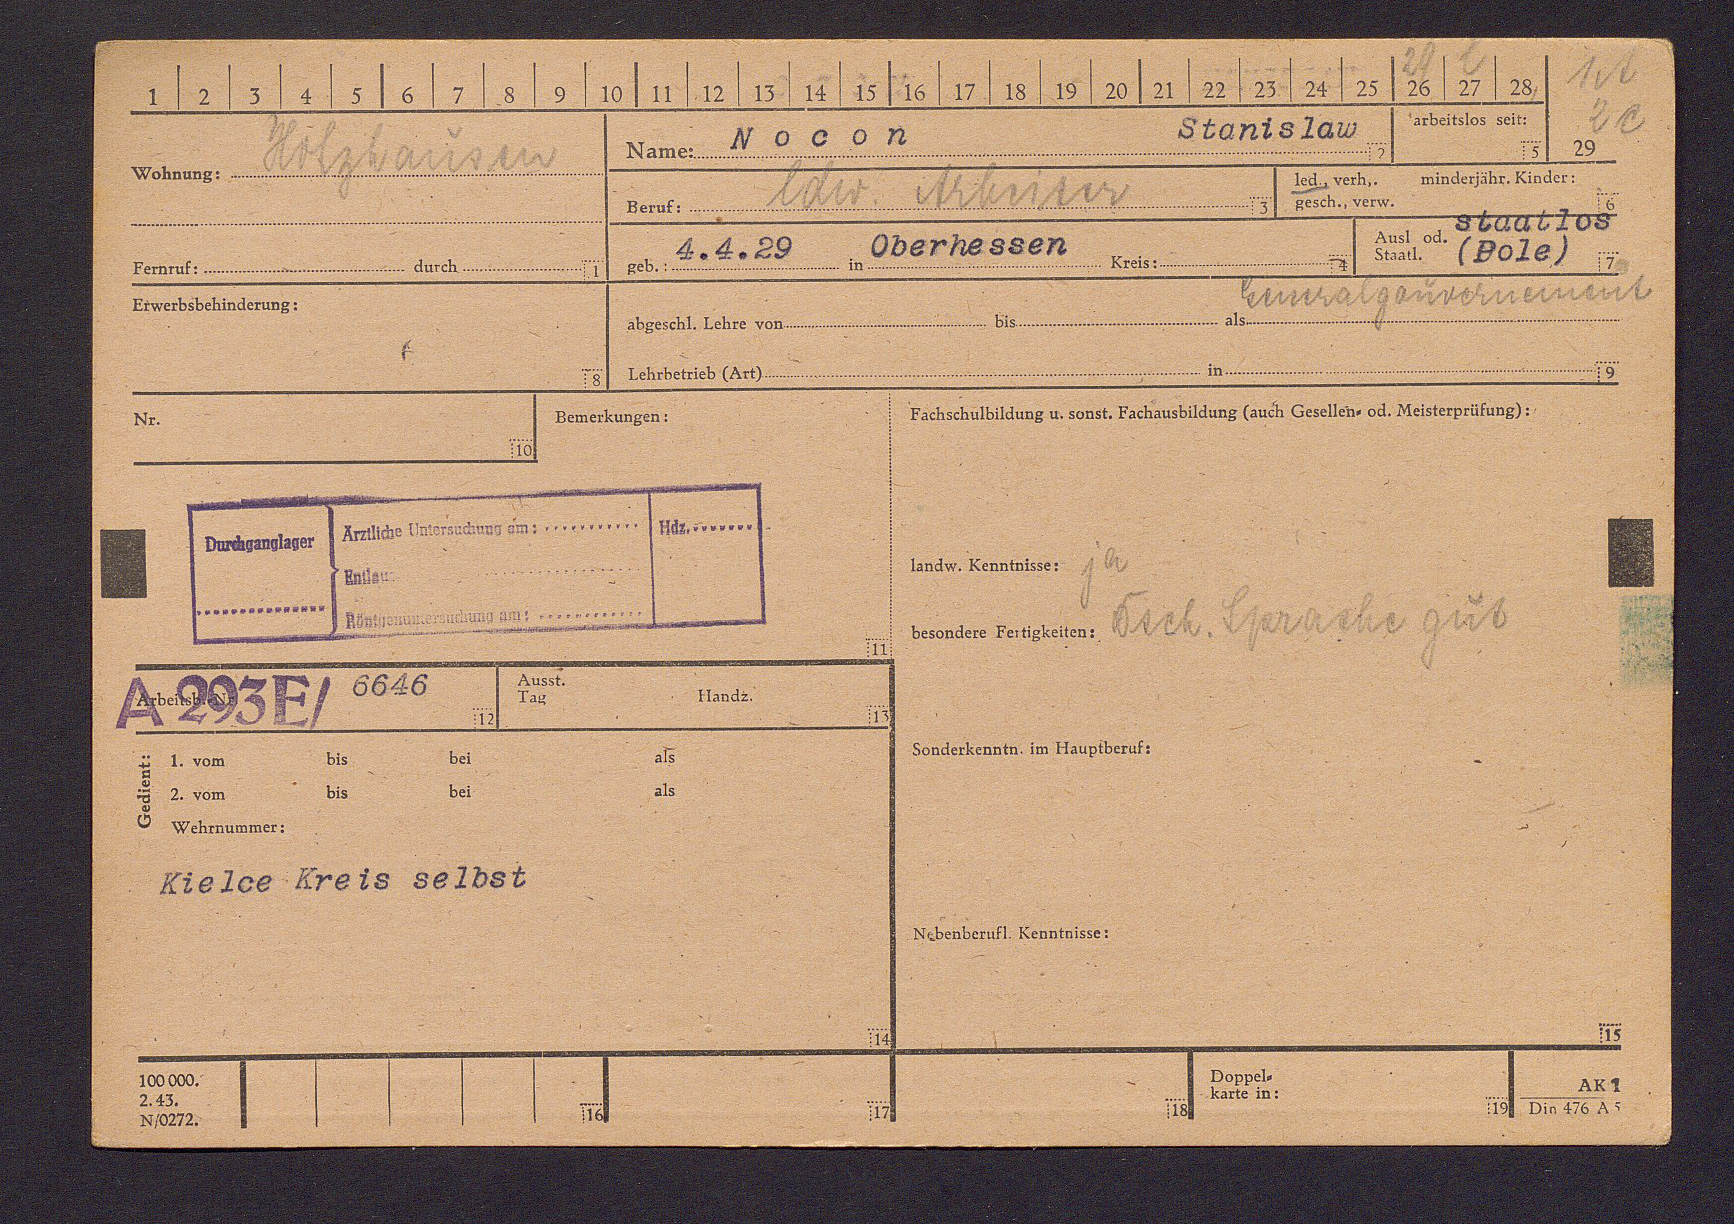 1 2 3 4 5 6 7 8 9 10 11 12 13 14 15 16 17 18 19 20 21 22 23 24 25 26 27 28 29
29
1ct
2c
Wohnung: Holzhausen
Name: Nocon Stanislaw 2
arbeitslos seit: 5
Beruf: ldw. Arbeiter 3
led., verh., minderjähr. Kinder:
gesch., verw. 6
Fernruf: durch 1
geb.: 4.4.29 in Oberhessen Kreis: 4
Ausl od. staatlos
Staatl. (Pole) 7
Generalgouvernement
Erwerbsbehinderung:
8
abgeschl. Lehre von bis als
Lehrbetrieb (Art) in 9
Nr. 10
Bemerkungen:
Fachschulbildung u. sonst. Fachausbildung (auch Gesellen- od. Meisterprüfung):
Durchganglager
Ärztliche Untersuchung am:
Entlau
Röntgenuntersuchung am:
Hdz.
11
landw. Kenntnisse: ja
besondere Fertigkeiten: Dtsch. Sprache gut
Arbeitsb.-Nr. A 293E/ 6646 12
Ausst.
Tag Handz. 13
Sonderkenntn. im Hauptberuf:
Gedient:
1. vom bis bei als
2. vom bis bei als
Wehrnummer:
Kielce Kreis selbst
14
Nebenberufl. Kenntnisse:
15
100 000.
2. 43.
N/0272.
16 17 18
Doppel-
karte in: 19
AK 1
Din 476 A 5